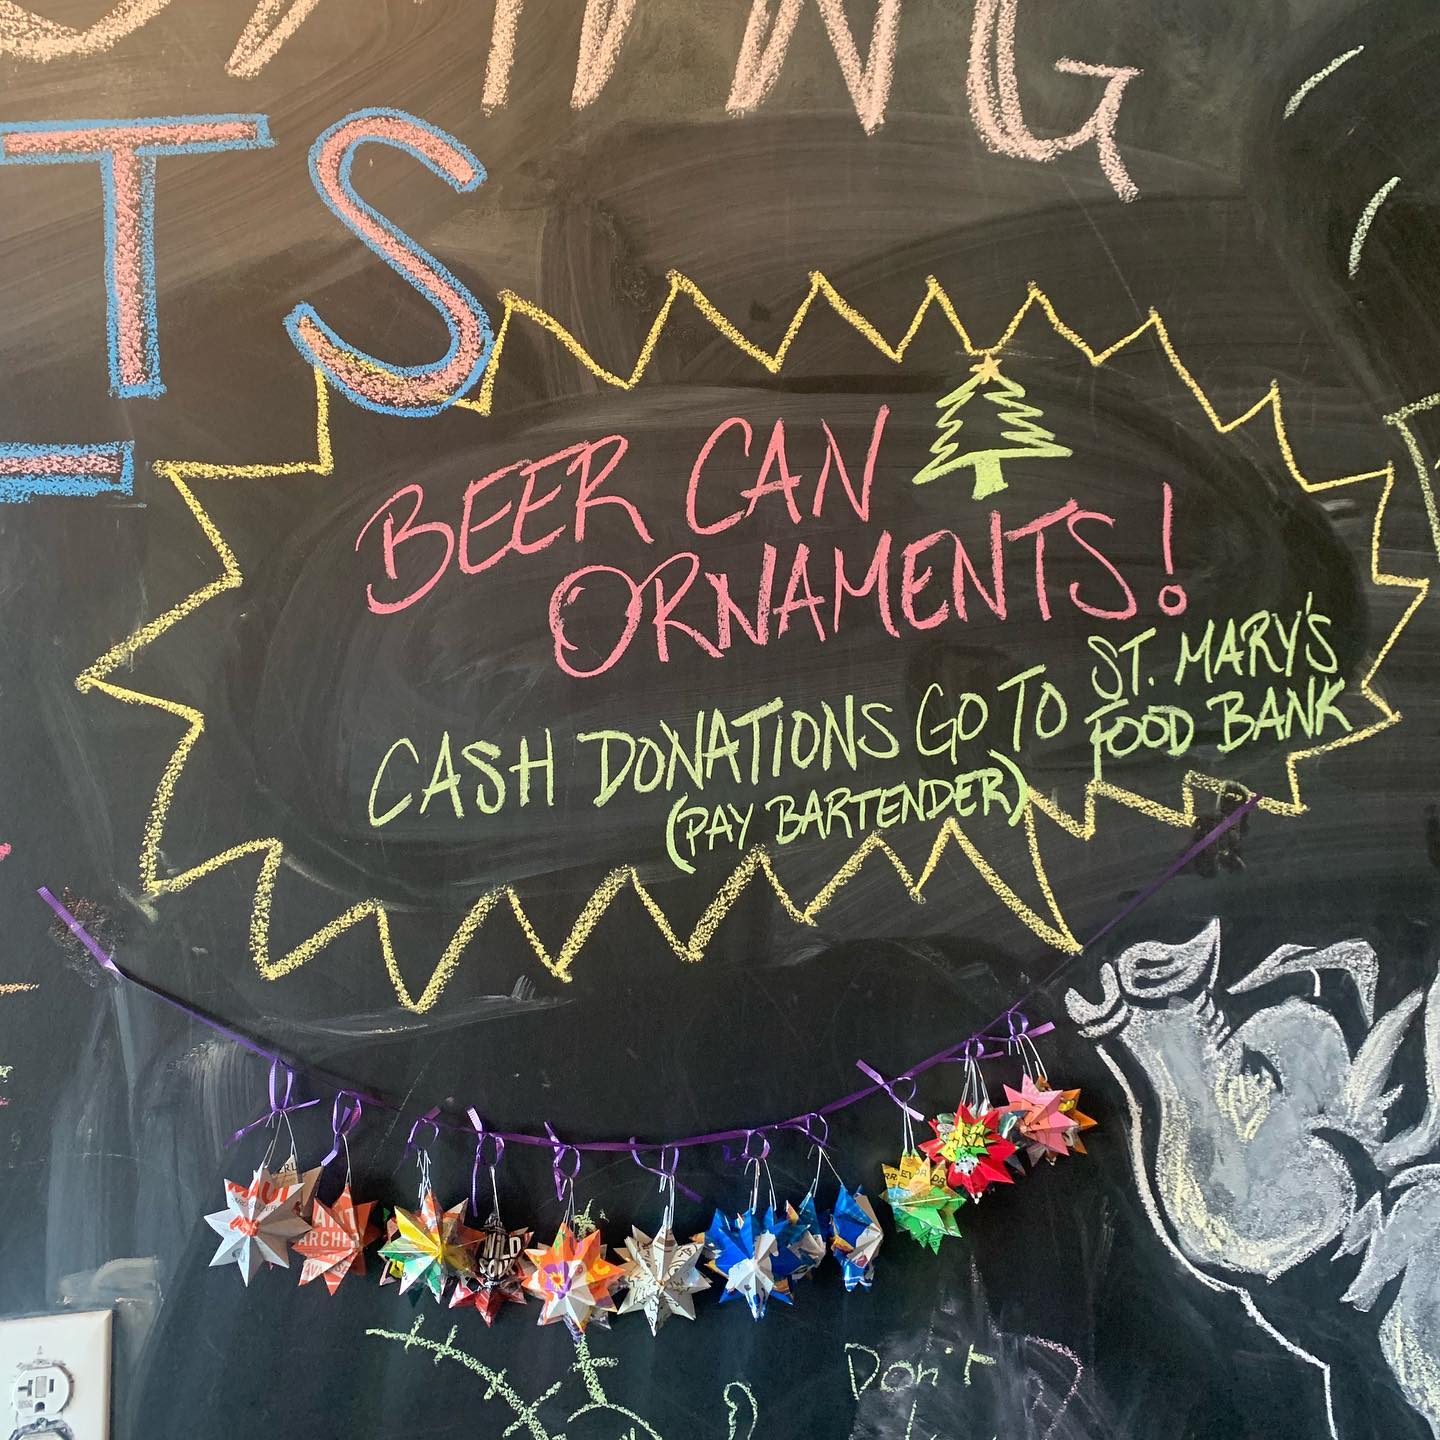 TS
BEER CAN
ORNAMENTS!
CASH DONATIONS GO TO ST. MARY'S
FOOD BANK
(PAY BARTENDER)
WILD
ARCHER
Don't